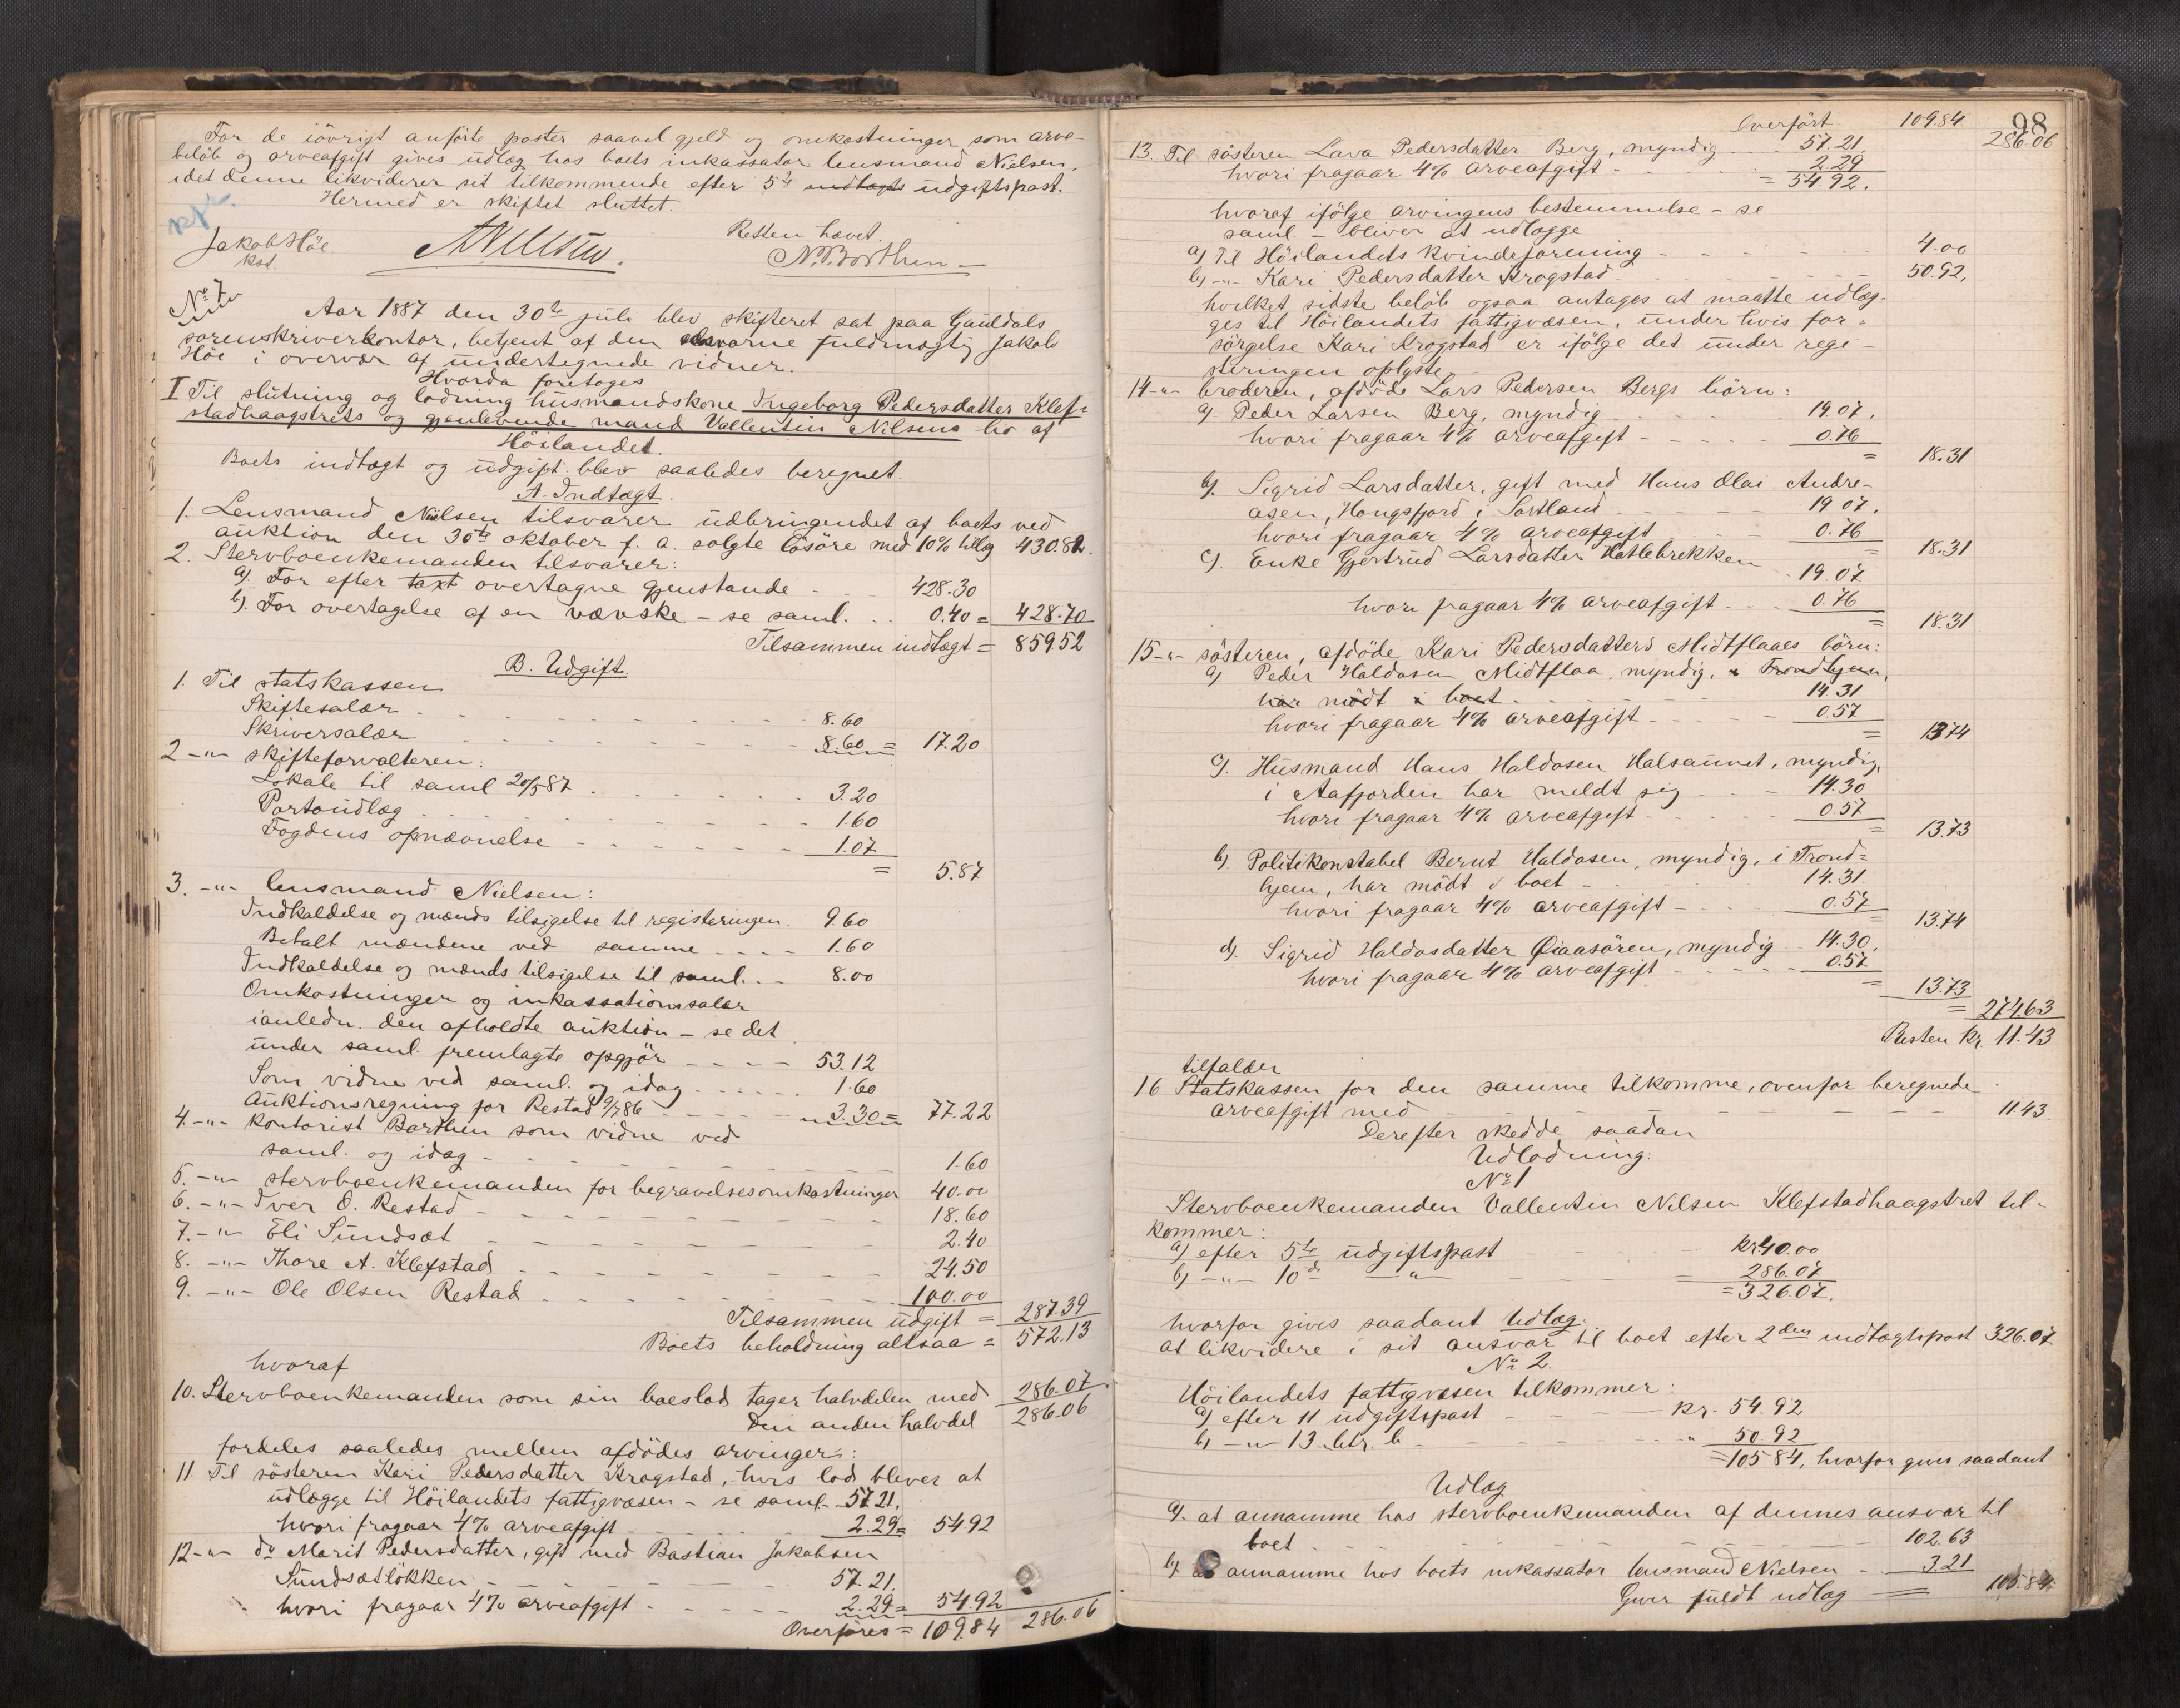 For de iövrigt anförte poster saavel gjeld og omkostninger som arve-
beløb og arveafgift gives udlæg hos boets inkassator lensmand Nielsen,
idet denne likviderer sit tilkommende efter 5te indtægts udgiftspost.
Hermed er skiftet sluttet.
Retten hævet.
Jakob Höe
kst.
N. P. Borthen
No 7
Aar 1887 den 30te juli blev skifteret sat paa Gauldals
sorenskriverkontor, betjent af den edsvorne fuldmægtig Jakob
Höe i overvær af undertegnede vidner.
Hvorda foretoges
I Til slutning og lodning husmandskone Ingeborg Pedersdatter Klef-
stadhaagstrets og gjenlevende mand Vallentin Nilsens bo af
Höilandet.
Boets indtægt og udgift blev saaledes beregnet.
A. Indtægt.
1. Lensmand Nielsen tilsvarer udbringendet af boets ved
auktion den 30te oktober f. a. solgte lösöre med 10% tillæg 430.82.
2. Stervboenkemanden tilsvarer:
a). For efter taxt overtagne gjenstande 428.30
b). For overtagelse af en vævske - se saml. 0.40 = 428.70
Tilsammen indtægt = 859.52
B. Udgift.
1. Til statskassen
Skiftesalær 8.60
Skriversalær 8.60 = 17.20
2 -"- skifteforvalteren:
Lokale til saml 20/5 87 3.20
Portoudlæg 1.60
Fogdens opnævnelse 1.07
= 5.87
3. -"- lensmand Nielsen:
Indkaldelse og mænds tilsigelse til registeringen. 9.60
Betalt mændene ved samme 1.60
Indkaldelse og mænds tilsigelse til saml. 8.00
Omkostninger og inkassationssalær
ianledn. den afholdte auktion - se det
under saml. fremlagte opgjör 53.12
Som vidne ved saml. og idag 1.60
Auktionsregning for Restad 9/7 86 3.30 = 77.22
4. -"- kontorist Borthen som vidne ved
saml. og idag 1.60
5. -"- stervboenkemanden for begravelsesomkostninger 40.00
6. -"- Iver O. Restad 18.60
7. -"- Eli Sundsæt 2.40
8. -"- Thore A. Klefstad 24.50
9. -"- Ole Olsen Restad 100.00
Tilsammen udgift = 287.39
Boets beholdning altsaa = 572.13
hvoraf
10. Stervboenkemanden som sin boeslod tager halvdelen med 286.07
Den anden halvdel 286.06
fordeles saaledes mellem afdödes arvinger:
11 Til sösteren Kari Pedersdatter Krogstad, hvis lod bliver at
udlægge til Höilandets fattigvæsen - se saml. 57.21.
hvori fragaar 4% arveafgift 2.29 = 54.92
12 -"- do Marit Pedersdatter, gift med Bastian Jakobsen
Sundsætlökken 57.21.
hvori fragaar 4% arveafgift 2.29 = 54.92
Overföres = 109.84 286.06
98
Overfört 109.84 286.06
13. Til sösteren Lava Pedersdatter Berg, myndig 57.21.
hvori fragaar 4% arveafgift 2.29
= 54.92.
hvoraf ifölge arvingens bestemmelse - se
saml. - bliver at udlægge
a) Til Höilandets kvindeforening 4.00
b) -"- Kari Pedersdatter Krogstad 50.92,
hvilket sidste belöb ogsaa antages at maatte udlæg-
ges til Höilandets fattigvæsen, under hvis for-
sörgelse Kari Krogstad er ifölge det under regi-
steringen oplyste
14 -"- broderen, afdöde Lars Pedersen Bergs börn:
a. Peder Larsen Berg, myndig 19.07.
hvori fragaar 4% arveafgift 0.76
= 18.31
b). Sigrid Larsdatter, gift med Hans Olai Andre-
asen, Hongsfjord i Sortland 19 07.
hvori fragaar 4% arveafgift 0.76
= 18.31
c). Enke Gjertrud Larsdatter Hatlebrekken
19.07
hvori fragaar 4% arveafgift 0.76
= 18.31
15 -"- sösteren, afdöde Kari Pedersdatters Midtflaaes börn:
a) Peder Haldosen Midtflaa, myndig, i Trondhjem,
har mödt i boet 14.31
hvori fragaar 4% arveafgift 0.57
= 13.74
c). Husmand Hans Haldosen Halsaunet, myndig,
i Aafjorden har meldt sig 14.30
hvori fragaar 4% arveafgift 0.57
= 13.73
b). Politikonstabel Bernt Haldosen, myndig, i Trond-
hjem, har mödt i boet 14.31.
hvori fragaar 4% arveafgift 0.57
= 13.74
d). Sigrid Haldosdatter Øiaasören, myndig 14.30.
hvori fragaar 4% arveafgift 0.57
= 13.73
= 274.63
Resten kr. 11.43
tilfalder
16 Statskassen for den samme tilkomme, ovenfor beregnede
arveafgift med 11.43
Derefter skedde saadan
Udlodning:
No 1
Stervboenkemanden Vallentin Nilsen Klefstadhaagstret til-
kommer:
a) efter 5te udgiftspost kr 40.00
b) -"- 10de -"- 286.07
= 326.07.
hvorfor gives saadant Udlæg:
at likvidere i sit ansvar til boet efter 2den indtægtspost 326.07
No 2.
Höilandets fattigvæsen tilkommer:
a) efter 11 udgiftspost kr. 54.92
b) -"- 13. litr. b " 50.92
= 105 84, hvorfor gives saadant
Udlæg
a). at annamme hos stervboenkemanden af dennes ansvar til
boet 102.63
b). at annamme hos boets inkassator lensmand Nielsen 3.21
Giver fuldt udlæg = 105.84.